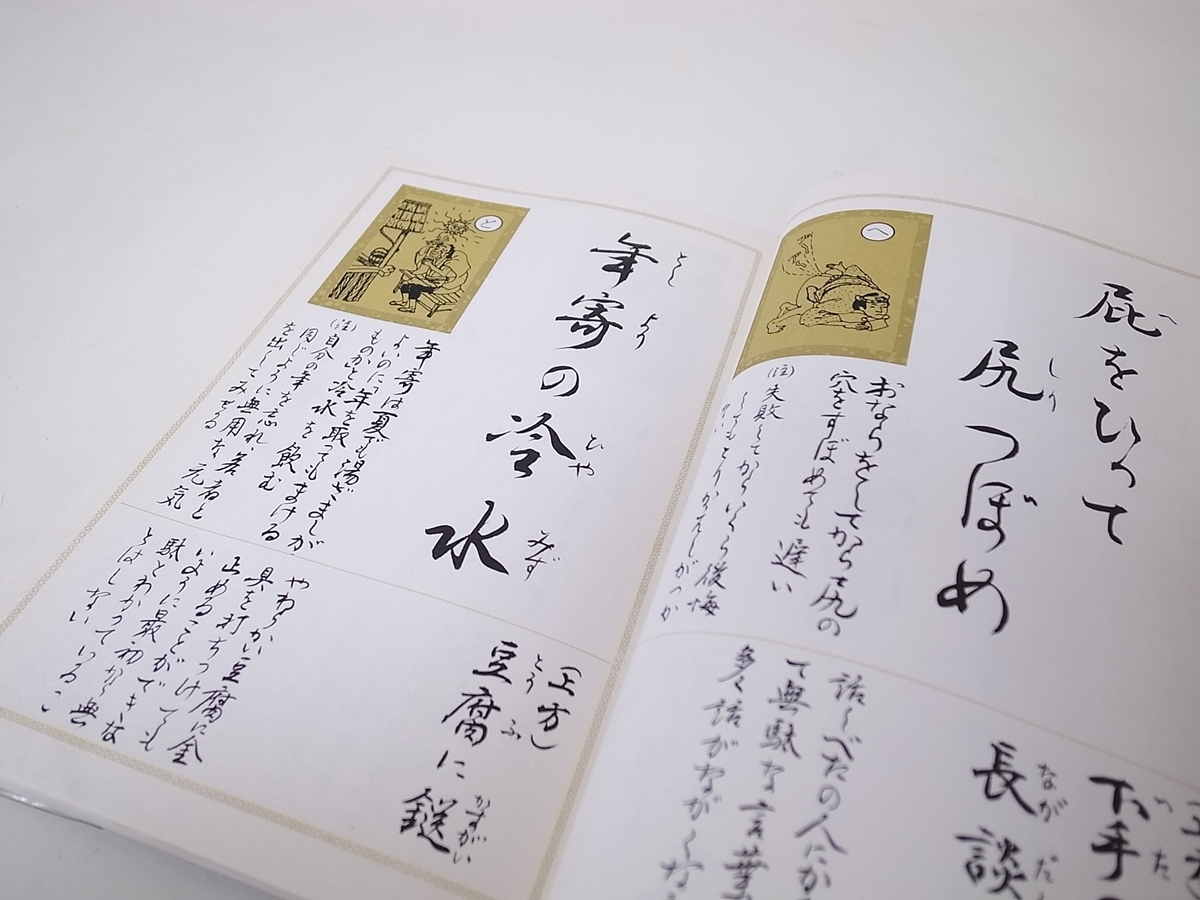 へ
屁をひって
尻つぼめ
へ
しり
おならをしてから尻の
穴をすぼめても遅い
(注)失敗してからいくら後悔
してもとりかえしがつか
下手の
長談
なが だん
話しべたの人にか
て無駄な言葉
多く話がながくな
と
年寄の冷水
とし より ひや みず
年寄は夏でも湯ざましが
よいのに「年を取ってもまける
ものか」と冷水を飲む
(注)自分の年を忘れ、若者と
同じように無用な元気
を出してみせる
(上方)
豆腐に鎹
とう ふ かすがい
やわらかい豆腐に金
具を打ちつけても
止めることができな
いように最初から無
駄とわかっているこ
とはしない